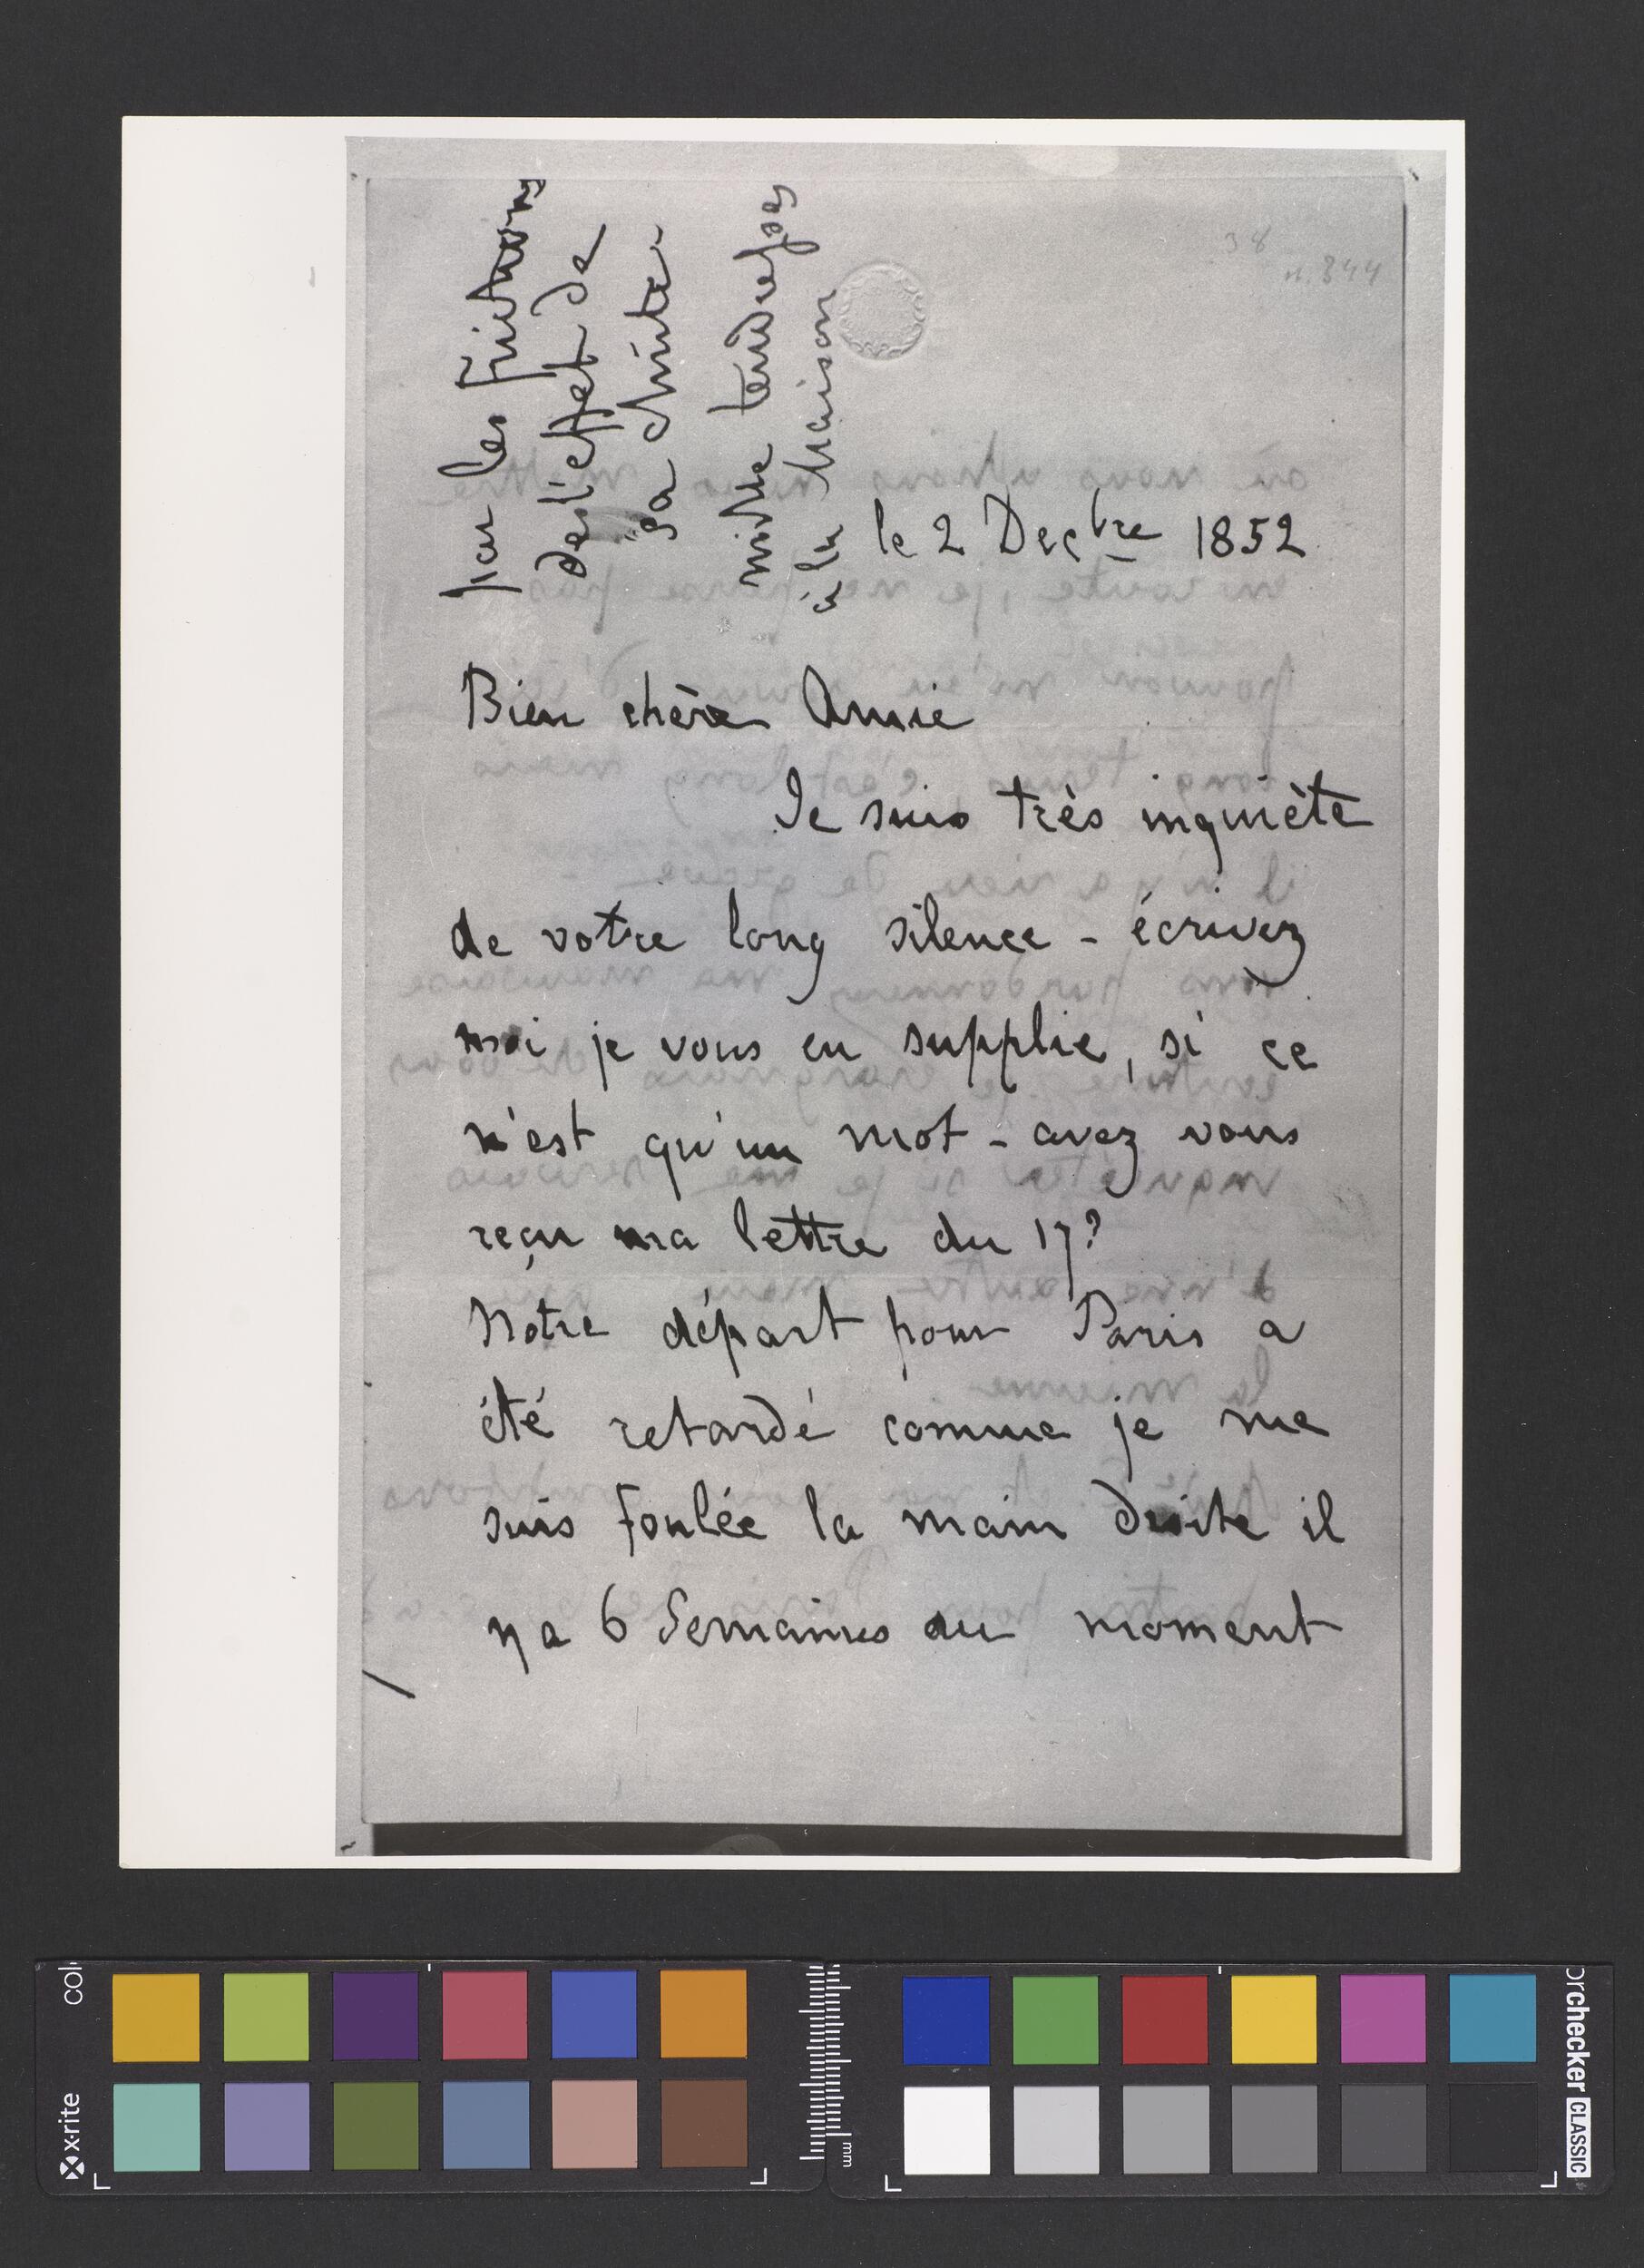 par les frictions
de l'effet de
sa chûte.
mille tendresses
à la Maison
38
n. 844
le 2 Decbre 1852
Bien chère Amie
Je suis très inquiète
de votre long silence - écrivez
moi je vous en supplie, si ce
n'est qu'un mot - avez vous
reçu ma lettre du 17?
Notre départ pour Paris a
été retardé comme je me
suis foulée la main droite il
y a 6 Semaines au moment
x-rite
col
mm
orchecker CLASSIC